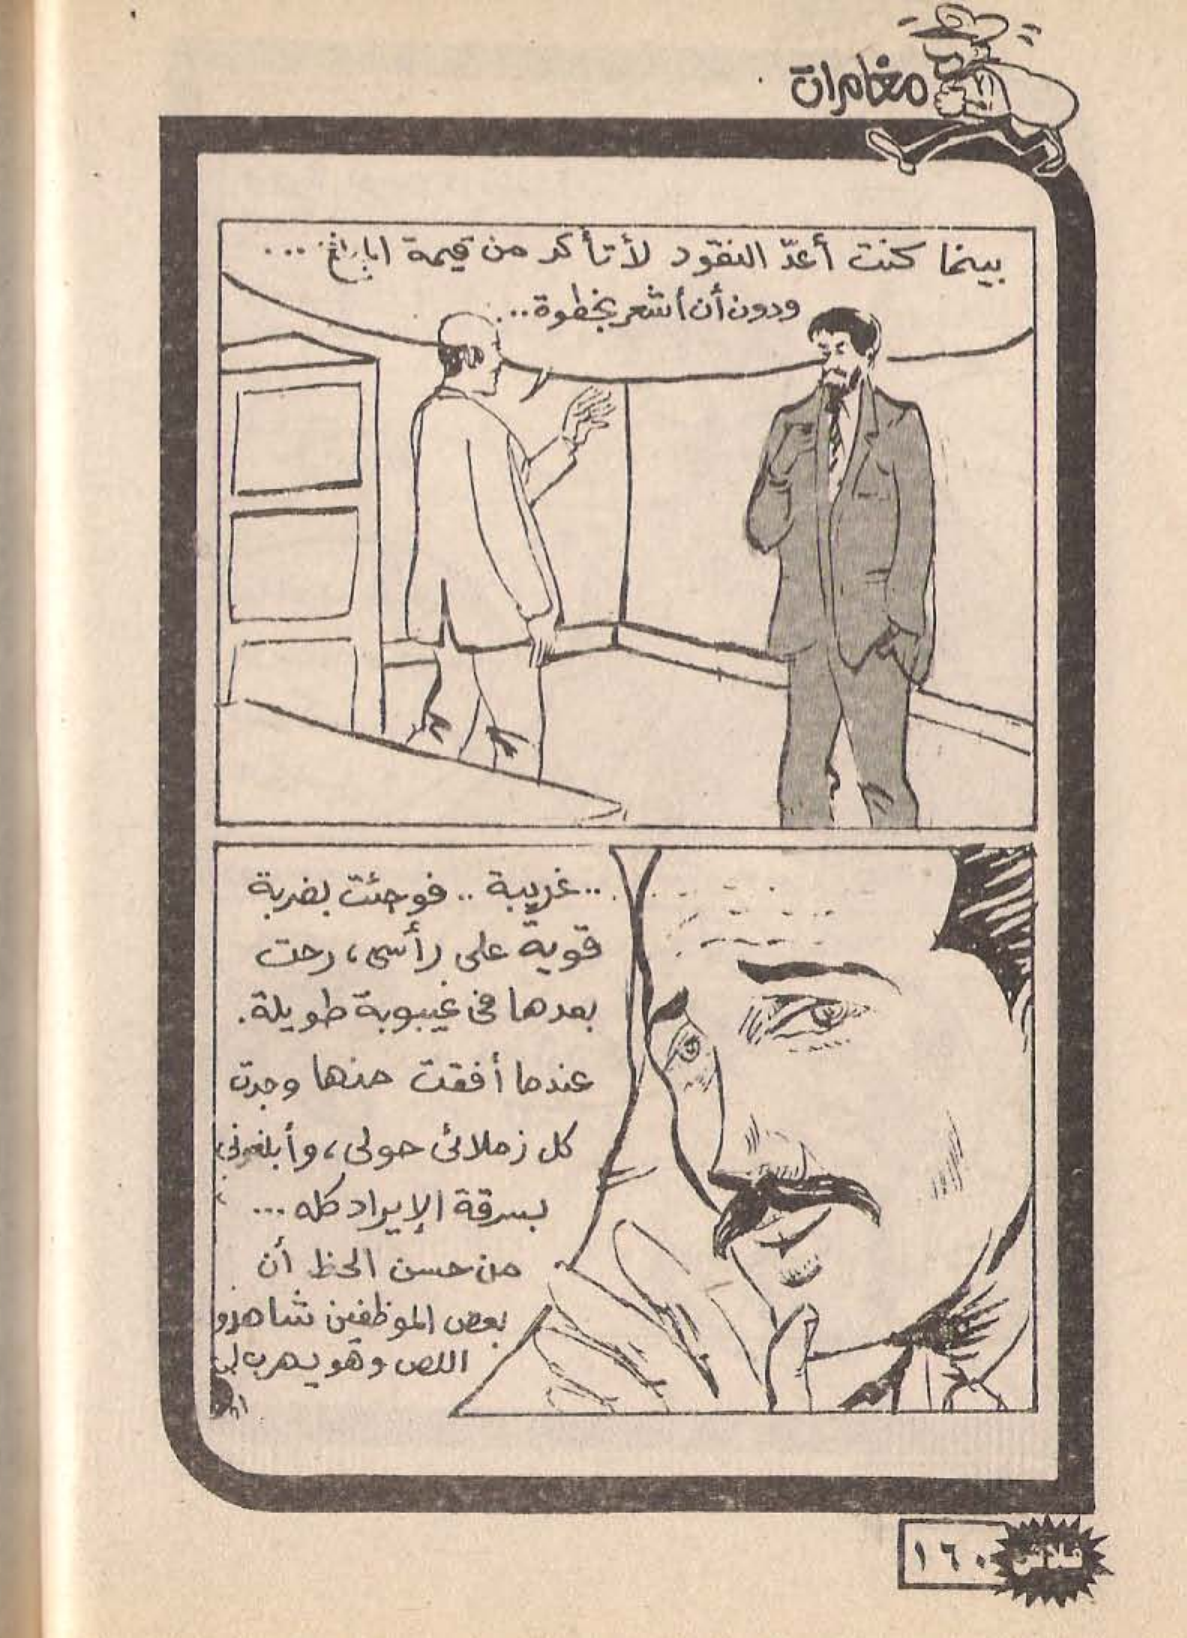 مغامرات
بينما كنت أعدّ النقود لأتأكد من قيمة المبالغ ...
ودون أن أشعر بخطوة ..
.. غريبة .. فوجئت بضربة
قوية على رأسى ، رحت
بعدها فى غيبوبة طويلة .
عندما أفقت منها وجدت
كل زملائى حولى ، وأبلغونى
بسرقة الإيراد كله ...
من حسن الحظ أن
بعض الموظفين شاهدوا
اللص وهو يهرب
فلاش
١٦٠